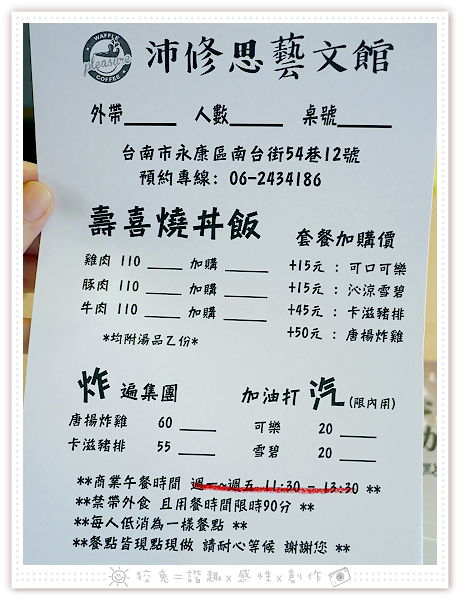 WAFFLE
pleasure
COFFEE
沛修思藝文館
外帶_____ 人數_____ 桌號_____
台南市永康區南台街54巷12號
預約專線: 06-2434186
壽喜燒丼飯
雞肉 110 ____ 加購 _____
豚肉 110 ____ 加購 _____
牛肉 110 ____ 加購 _____
*均附湯品乙份*
套餐加購價
+15元 : 可口可樂
+15元 : 沁涼雪碧
+45元 : 卡滋豬排
+50元 : 唐揚炸雞
炸遍集團
唐揚炸雞 60 ____
卡滋豬排 55 ____
加油打汽(限內用)
可樂 20 ____
雪碧 20 ____
**商業午餐時間 週一~週五 11:30 - 13:30 **
**禁帶外食 且用餐時間限時90分 **
**每人低消為一樣餐點 **
**餐點皆現點現做 請耐心等候 謝謝您 **
狡兔=諧趣x感性x創作